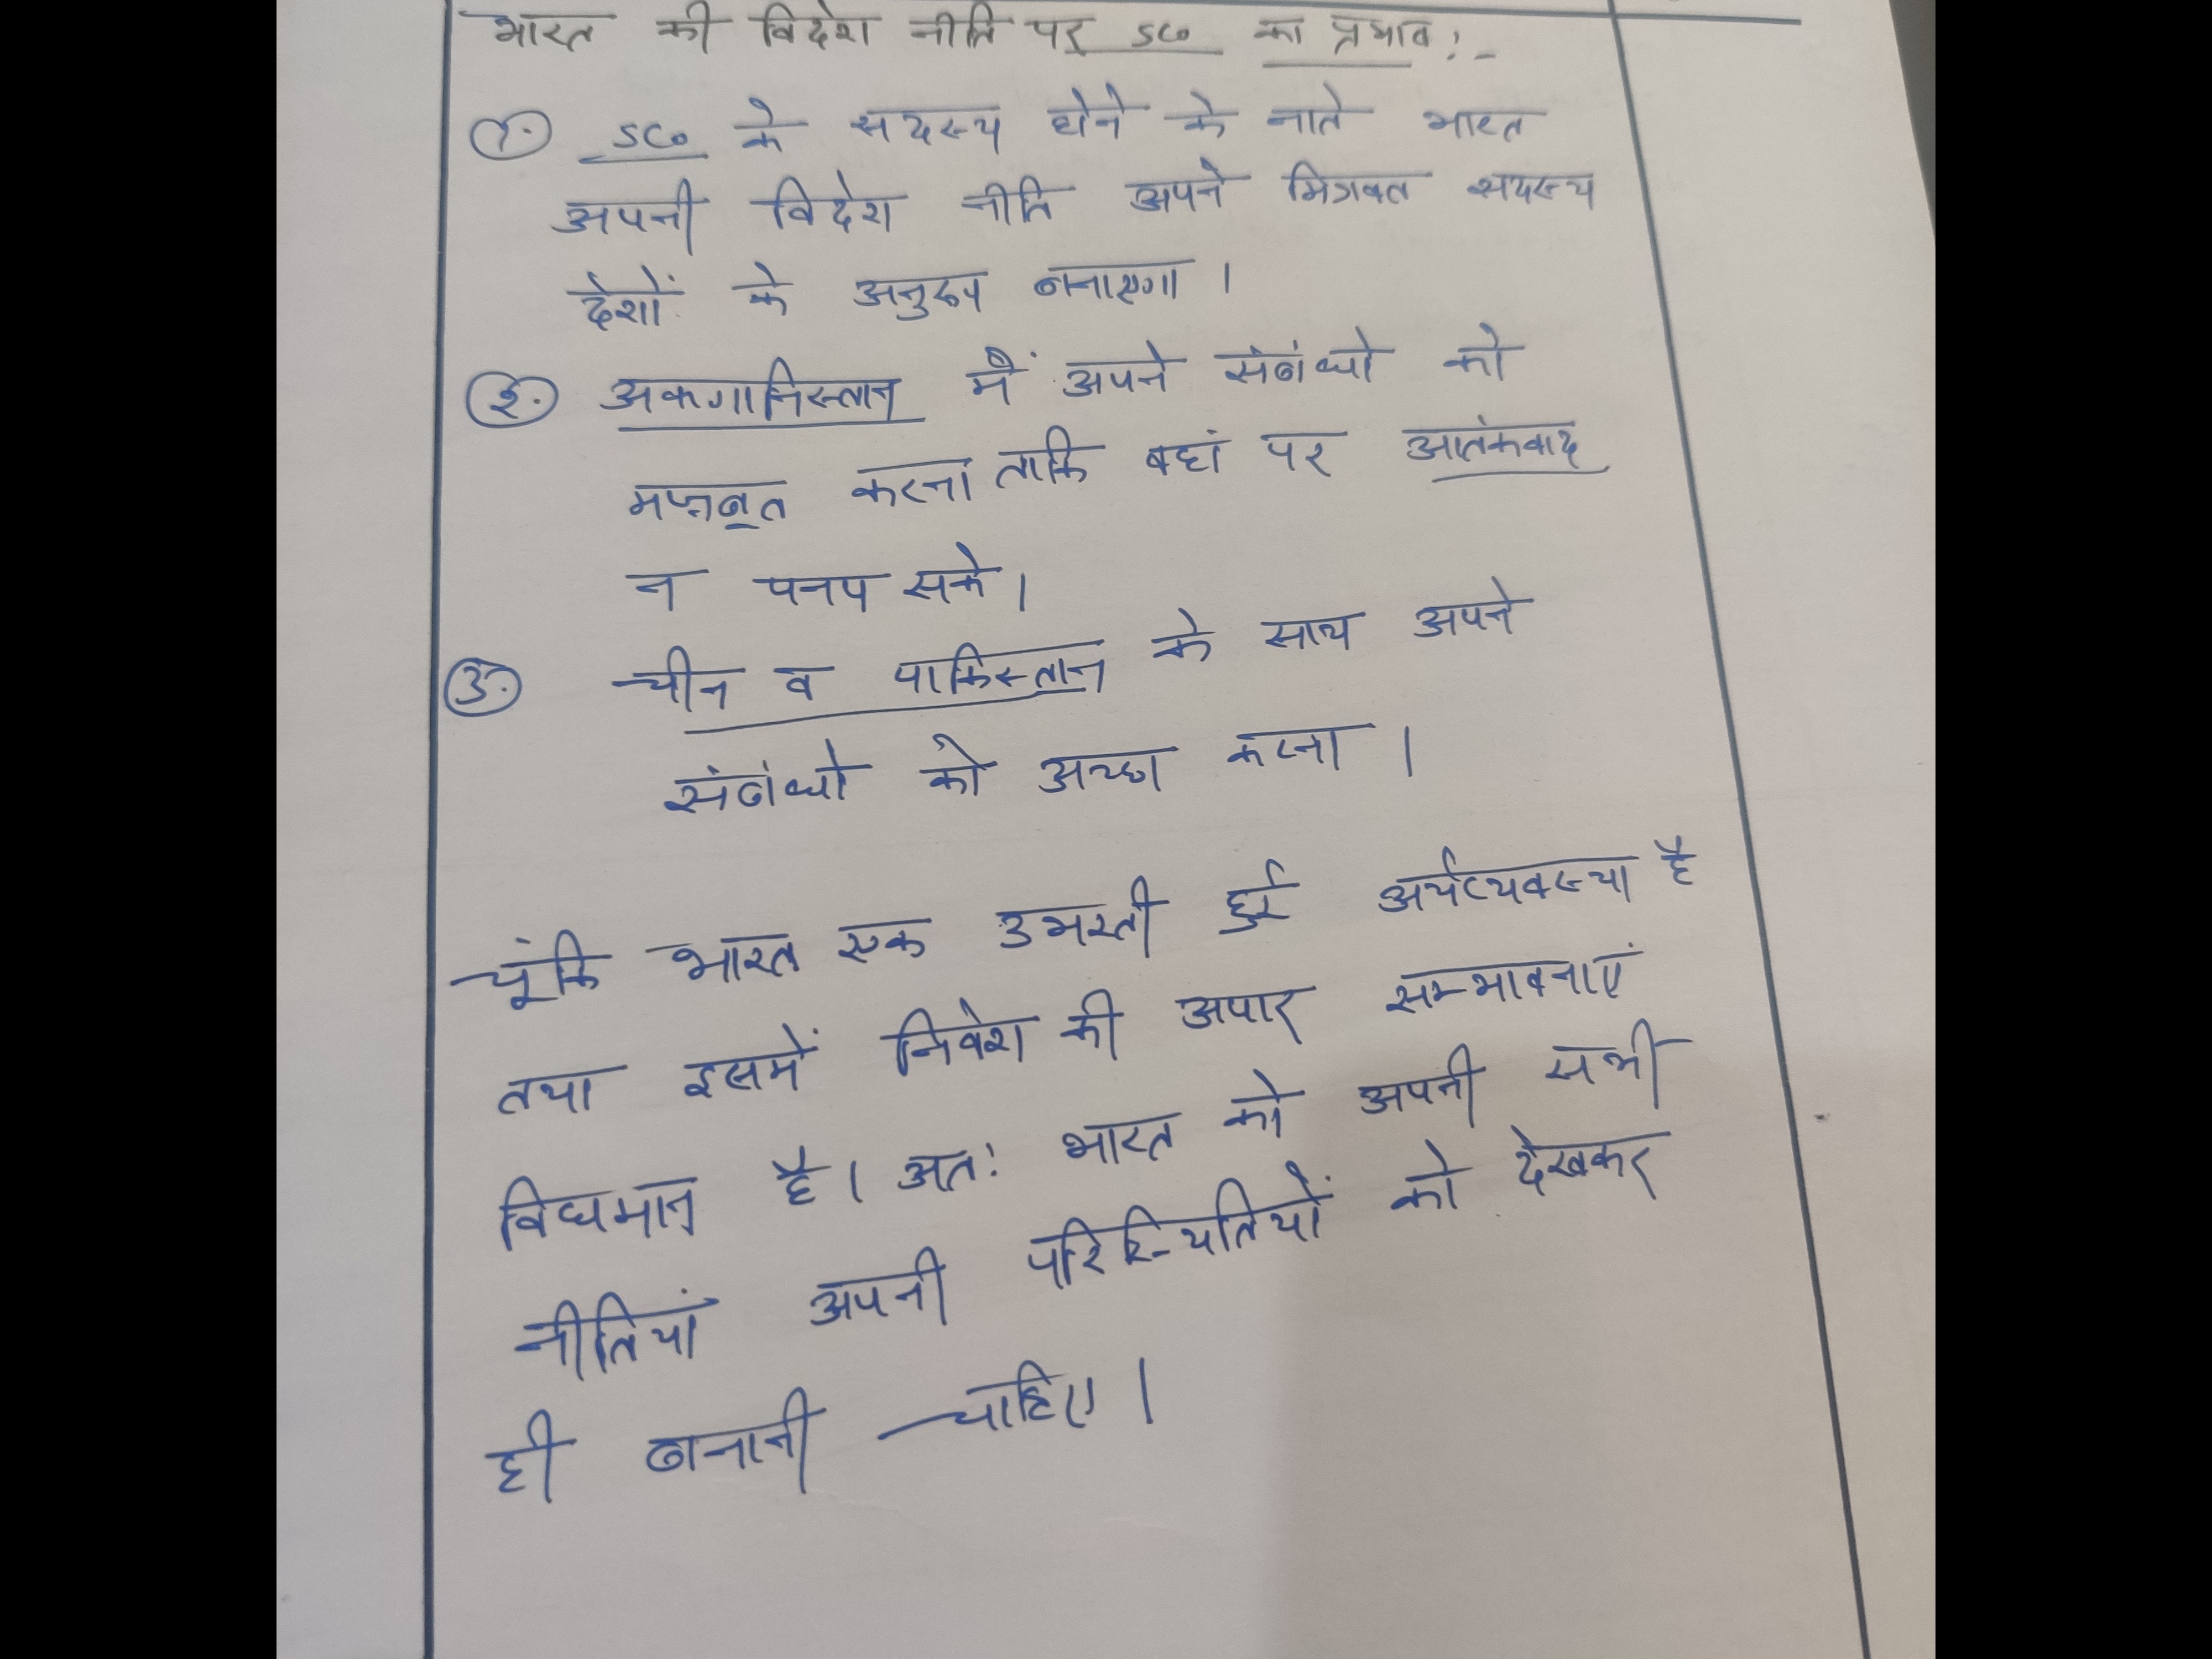 भारत की विदेश नीति पर SCO का प्रभाव :-
1. SCO के सदस्य होने के नाते भारत
अपनी विदेश नीति अपने मित्रवत सदस्य
देशों के अनुरूप बनाएगा ।
2. अफगानिस्तान में अपने संबंधो को
मजबूत करना ताकि वहां पर आतंकवाद
न पनप सके ।
3. चीन व पाकिस्तान के साथ अपने
संबंधो को अच्छा करना ।
चूंकि भारत एक उभरती हुई अर्थव्यवस्था है
तथा इसमें निवेश की अपार सम्भावनाएं
विधमान है । अतः भारत को अपनी सभी
नीतियां अपनी परिस्थितियों को देखकर
ही बनानी चाहिए ।